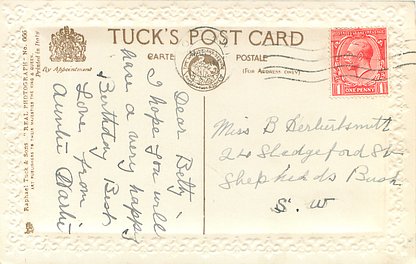 TUCK'S POST CARD
By Appointment
CARTE POSTALE
(FOR ADDRESS ONLY)
POSTAGE REVENUE
1 ONE PENNY 1
Raphael Tuck & Sons "REAL PHOTOGRAPH" No. 666
ART PUBLISHERS TO THEIR MAJESTIES THE KING & QUEEN
Printed in Italy
Dear Betty
I hope you will
have a very happy
Birthday Best
Love from
Auntie
Miss B
24 St
Shepherds Bush
S. W